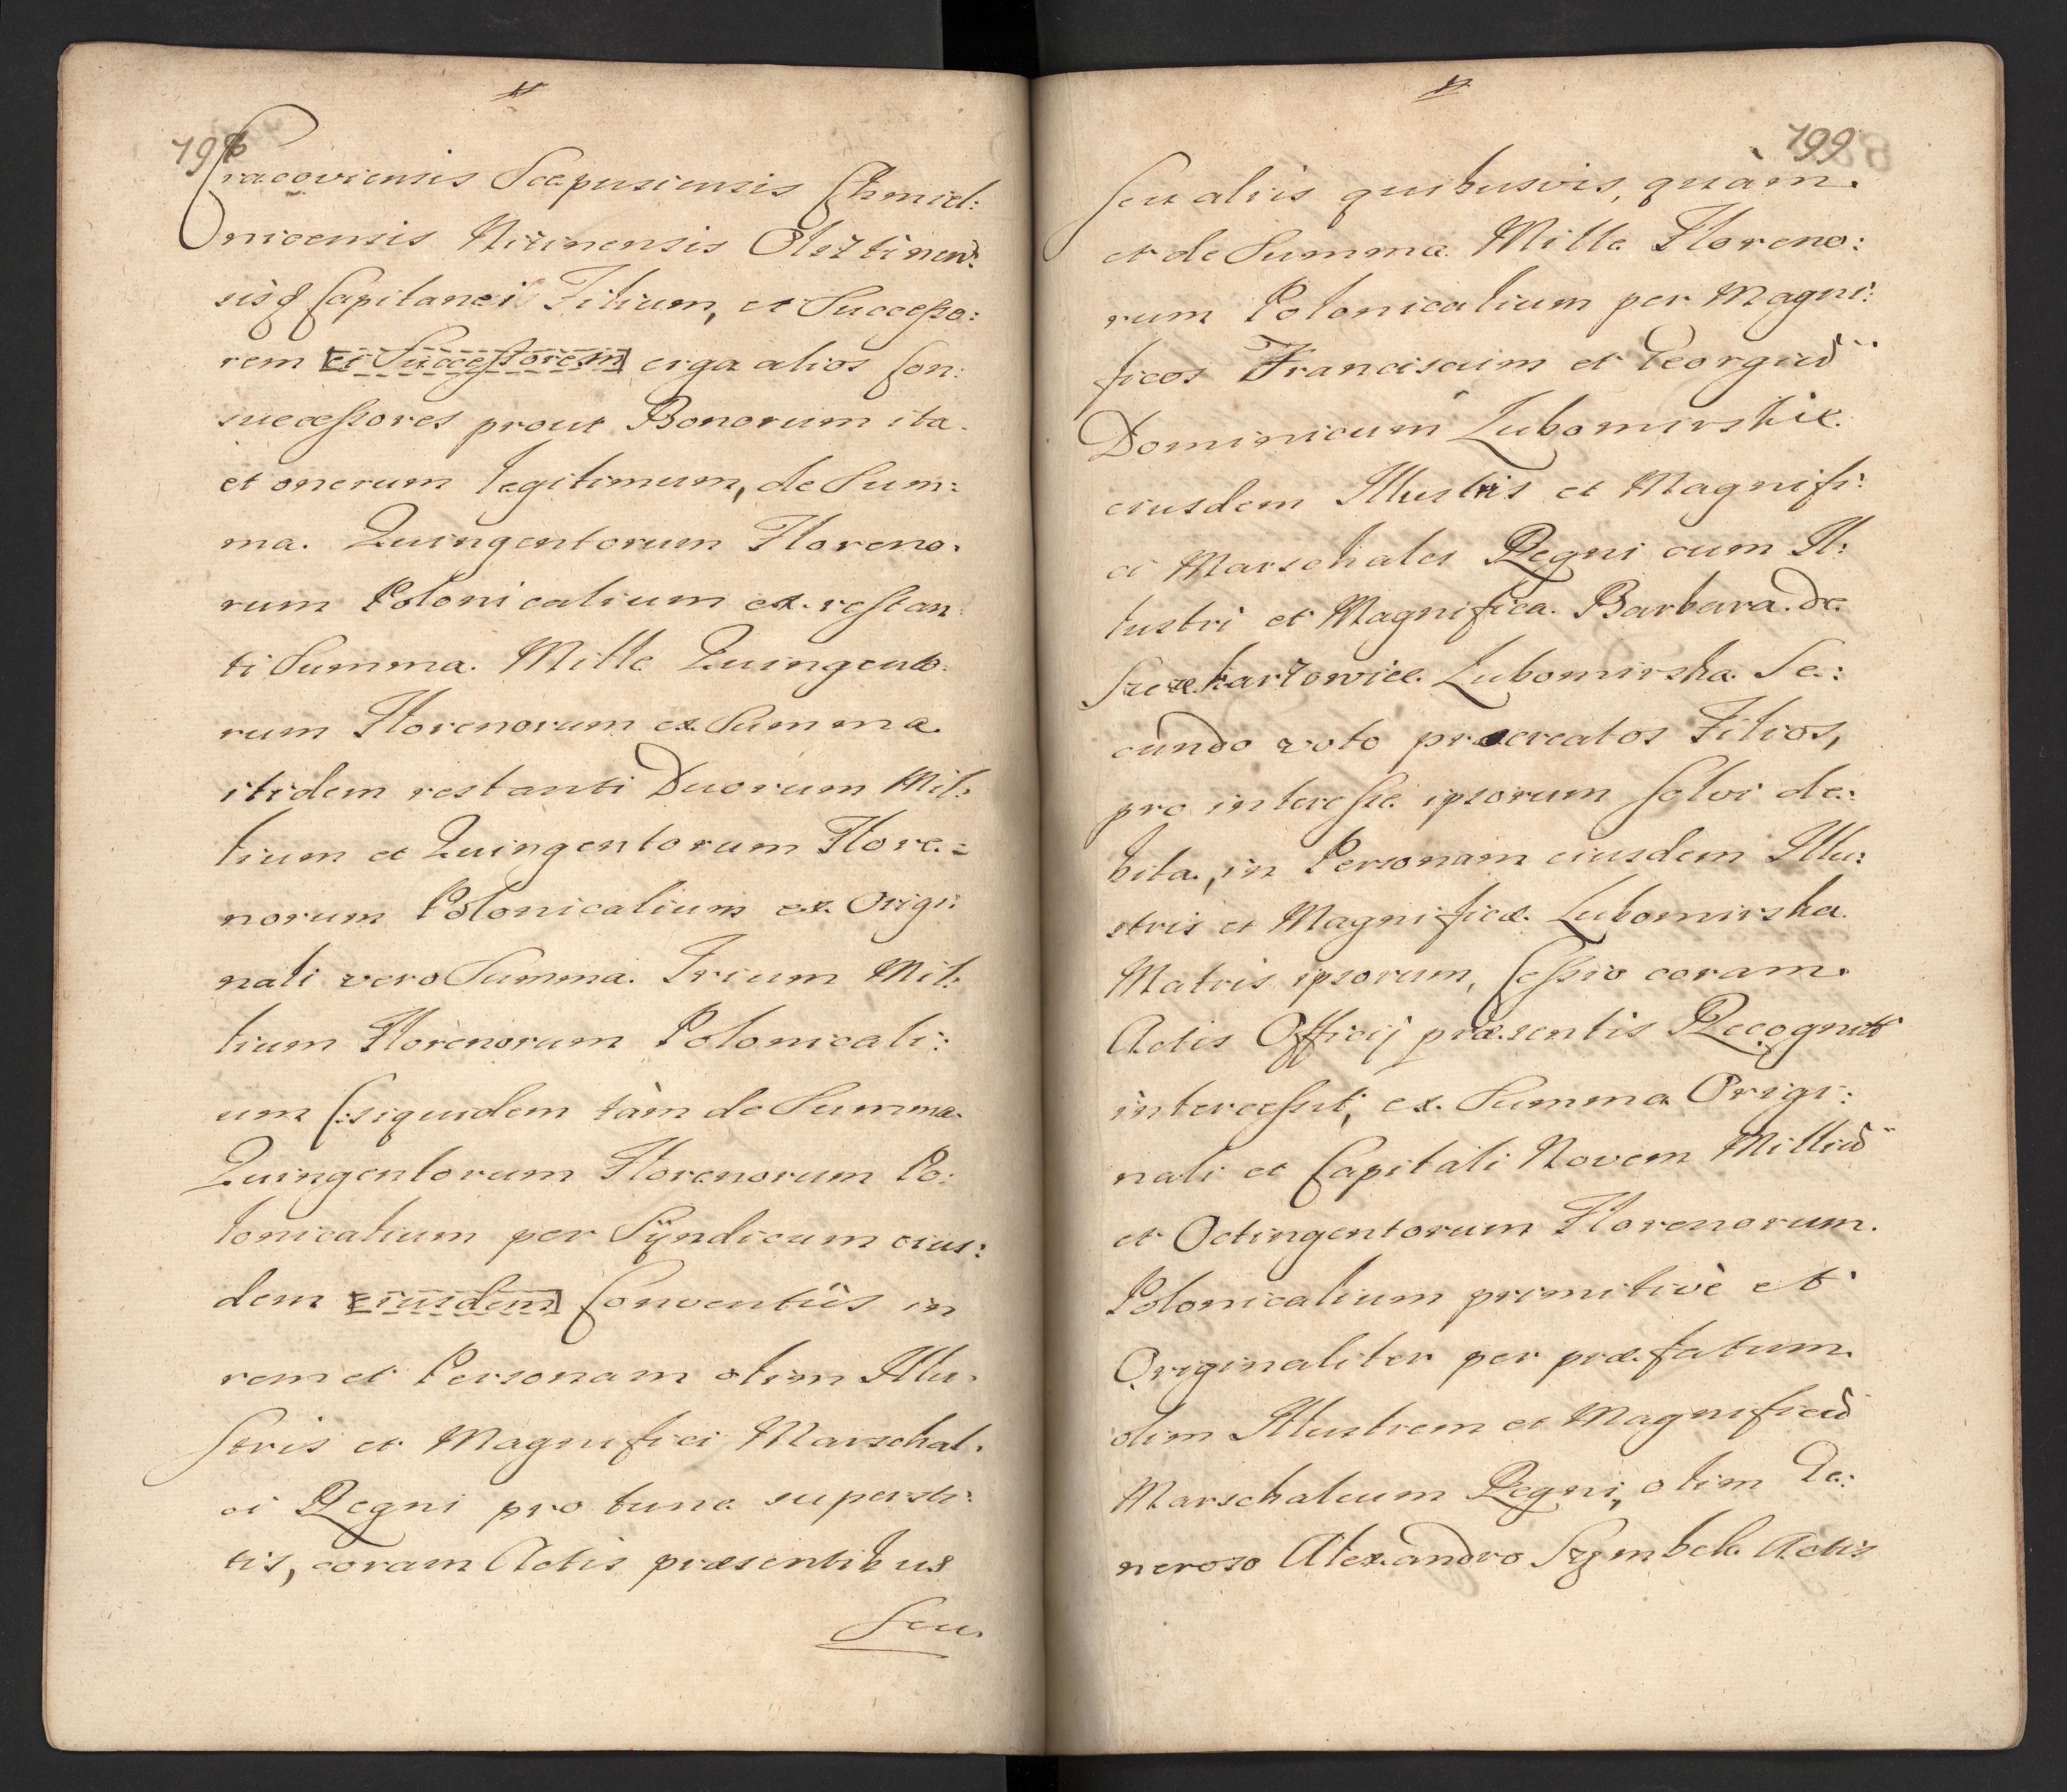 198
Cracoviensis Scepusiensis Chmiel:
nicensis Nizinensis Olsztinen:
sisq Capitanei Filium, et Successo:
rem et Successorem erga alios Con:
successores prout Bonorum ita
et onerum legitimum, de Sum:
ma Quingentorum Floreno:
rum Polonicalium ex restan:
ti Summa Mille Quingento:
rum Florenorum ex Summa
itidem restanti Duorum Mil:
lium et Quingentorum Flore:
norum Polonicalium ex Origi:
nali vero Summa Trium Mil:
lium Florenorum Polonicali:
um (:siquidem tàm de Summa
Quingentorum Florenorum Po:
lonicalium per Syndicum eius:
dem eiusdem Conventûs in
rem et Personam olim Illu:
stris et Magnifici Marschal:
ci Regni pro tunc supersti:
tis, coram Actis præsentibus
Seu
199
Seu aliis quibusvis, quàm
et de Summa Mille Floreno:
rum Polonicalium per Magni:
ficos Franciscum et Georgiũ
Dominicum Lubomirskie
eiusdem Illustris et Magnifi:
ci Marschalci Regni cum Il:
lustri et Magnifica Barbara de
Lubomirska Se:
cundo voto procreatos Filios,
pro interesse ipsorum solvi de:
bita, in Personam eiusdem Illu:
stris et Magnificæ Lubomirska
Matris ipsorum, Cessio coram
Actis Officij præsentis Recognita
intercessit, ex Summa Origi:
nali et Capitali Novem Milliũ
et Octingentorum Florenorum
Polonicalium primitivè et
Originaliter per præfatum
olim Illustrem et Magnificũ
Marschalcum Regni, olim Ge:
neroso Alexandro Szembek Actis